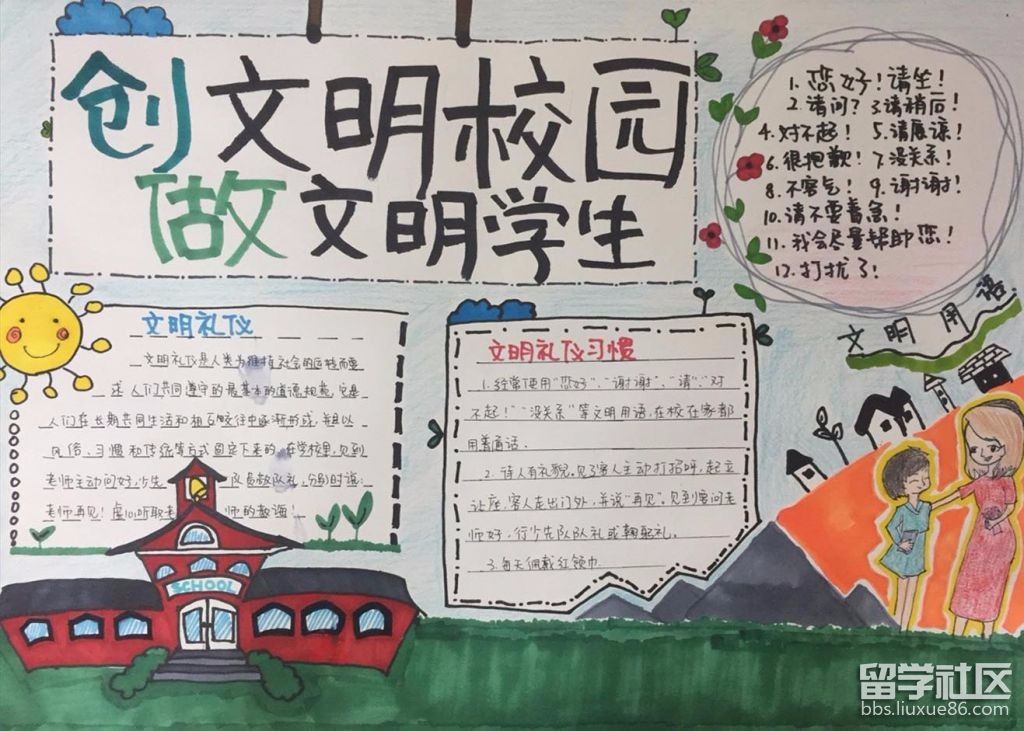 创文明校园
做文明学生
1.您好！请坐！
2.请问？3.请稍后！
4.对不起！ 5.请原谅！
6.很抱歉！ 7.没关系！
8.不客气！ 9.谢谢！
10.请不要着急！
11.我会尽量帮助您！
12.打扰了！
文明用语
文明礼仪
文明礼仪是人类为维持社会的运转而要
求人们共同遵守的最基本的道德规范，它是
人们在长期共同生活和相互交往中逐渐形成，并且以
风俗、习惯和传统等方式固定下来的。在学校里，见到
老师主动问好，少先 队员敬队礼，分别时说：
老师再见！虚心听取老 师的教诲！
文明礼仪习惯
1.经常使用“您好”、“谢谢”、“请”、“对
不起！”“没关系”等文明用语，在校在家都
用普通话．
2.待人有礼貌，见了客人主动打招呼，起立
让座，客人走出门外，并说“再见”。见到要问老
师好，行少先队队礼或鞠躬礼。
3.每天佩戴红领巾
SCHOOL
留学社区
bbs.liuxue86.com